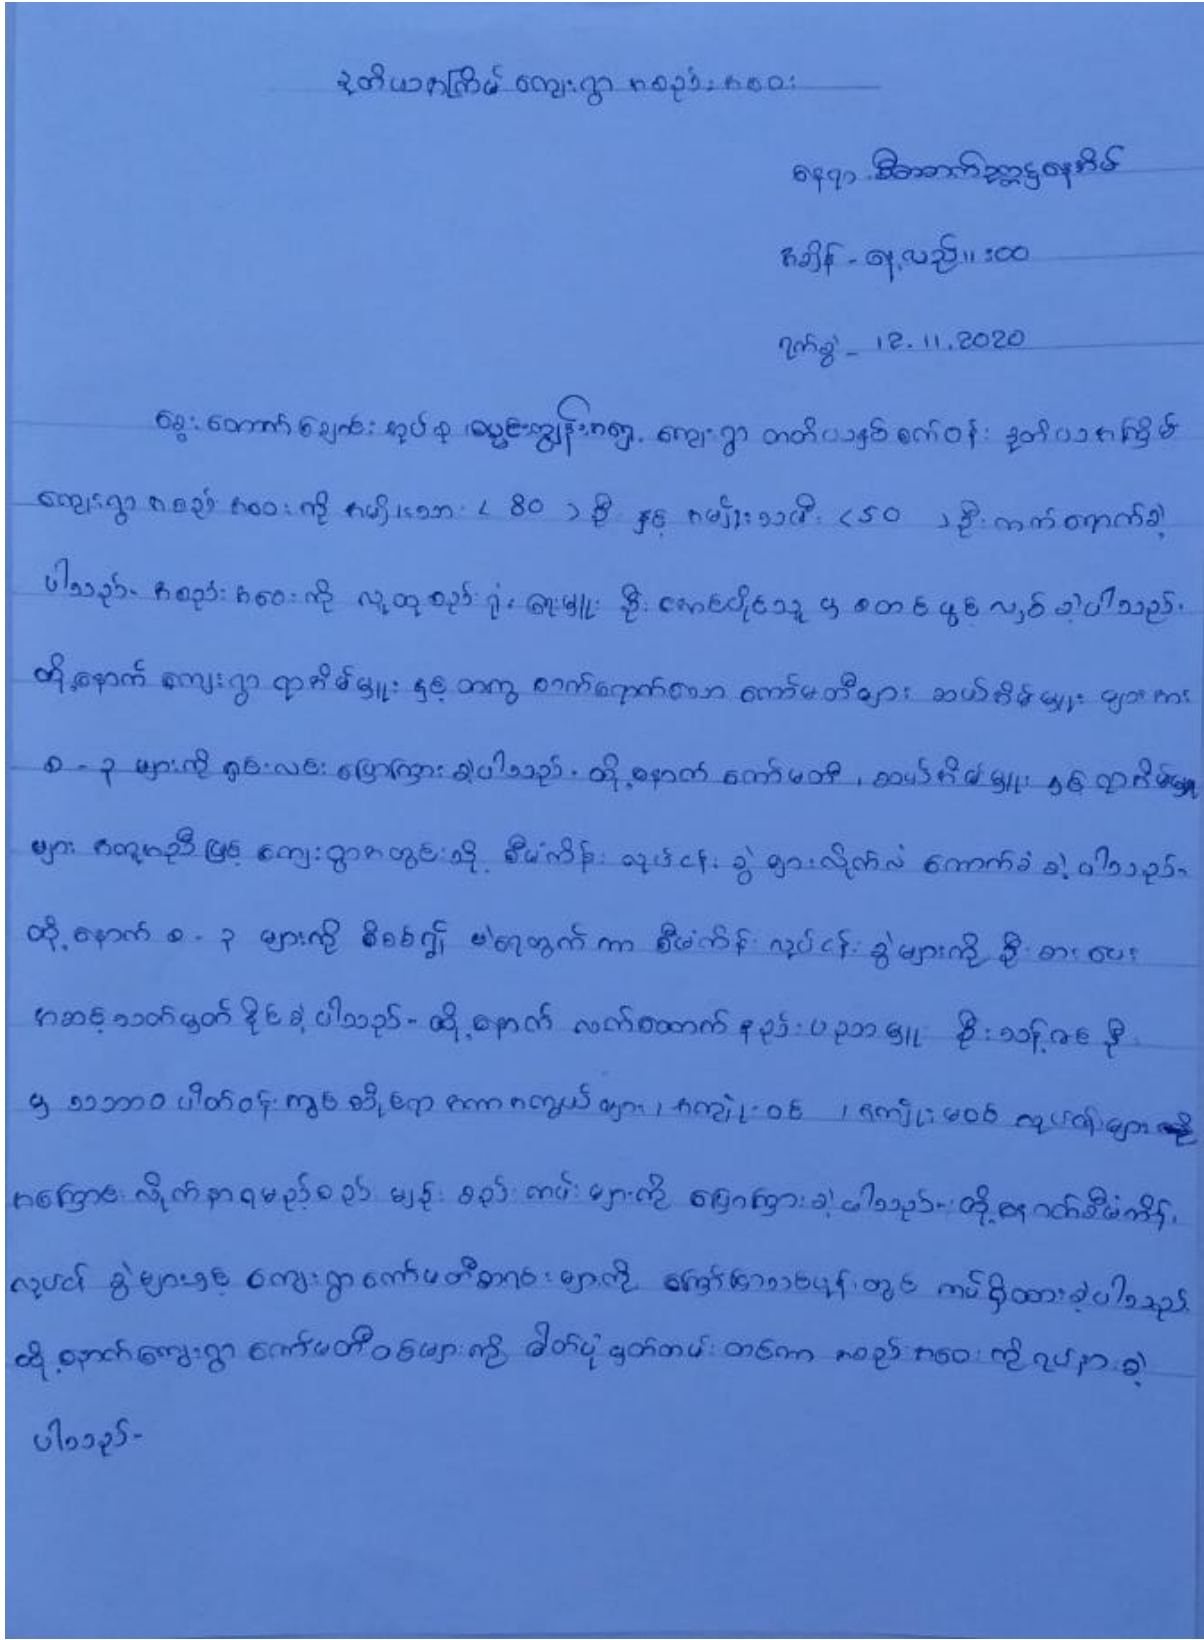 ဒုတိယအကြိမ် ကျေးရွာ အစည်းအဝေး
နေရာ
အချိန် - နေ့လည် ၁၁:၀၀
ရက်စွဲ - 12.11.2020
ချောင်း အုပ်စု ကျေးရွာ တတိယနှစ် စက်ဝန်း ဒုတိယအကြိမ်
ကျေးရွာ အစည်း အဝေး ကို အမျိုးသား ( 80 ) ဦး နှင့် အမျိုးသမီး ( 50 ) ဦး တက်ရောက်ခဲ့
ပါသည်- အစည်းအဝေး ကို လူထု စည်းရုံး ရေးမှူး ဦး အောင်ပိုင်သူ မှ စတင် ဖွင့် လှစ် ခဲ့ပါသည်-
ထို့နောက် ကျေးရွာ ရာအိမ်မှူး နှင့် တကွ တက်ရောက်သော ကော်မတီများ ဆယ်အိမ်မှူး များအား
စ - ၃ များကို ရှင်းလင်း ပြောကြား ခဲ့ပါသည်- ထို့နောက် ကော်မတီ ၊ ဆယ်အိမ်မှူး နှင့် ရာအိမ်မှူး
များ အကူအညီ ဖြင့် ကျေးရွာအတွင်းသို့ စီမံကိန်း လုပ်ငန်း ခွဲ များလိုက်လံ ကောက်ခံ ခဲ့ ပါသည်-
ထို့နောက် စ - ၃ များကို စိစစ်၍ မဲရေတွက် ကာ စီမံကိန်း လုပ်ငန်း ခွဲများကို ဦး စား ပေး
အဆင့်သတ်မှတ် နိုင်ခဲ့ ပါသည်- ထို့နောက် လက်ထောက် နည်း ပညာမှူး ဦး
မှ သဘာဝ ပါတ်ဝန်းကျင် ဆိုင်ရာ အကာအကွယ်များ ၊ အကျုံးဝင် ၊ အကျုံးမဝင် လုပ်ငန်းများ
အကြောင်း လိုက်နာရမည့်စည်းမျဉ်း စည်းကမ်း များကို ပြောကြားခဲ့ပါသည်- ထို့နောက်စီမံကိန်း
လုပ်ငန်း ခွဲများနှင့် ကျေးရွာကော်မတီစာရင်း များကို ကြော်ငြာသင်ပုန်းတွင် ကပ်ထားခဲ့ပါသည်
ထို့နောက်ကျေးရွာ ကော်မတီဝင်များကို ဓါတ်ပုံ မှတ်တမ်း တင်ကာ အစည်းအဝေး ကို ရုပ်သိမ်းခဲ့
ပါသည်-